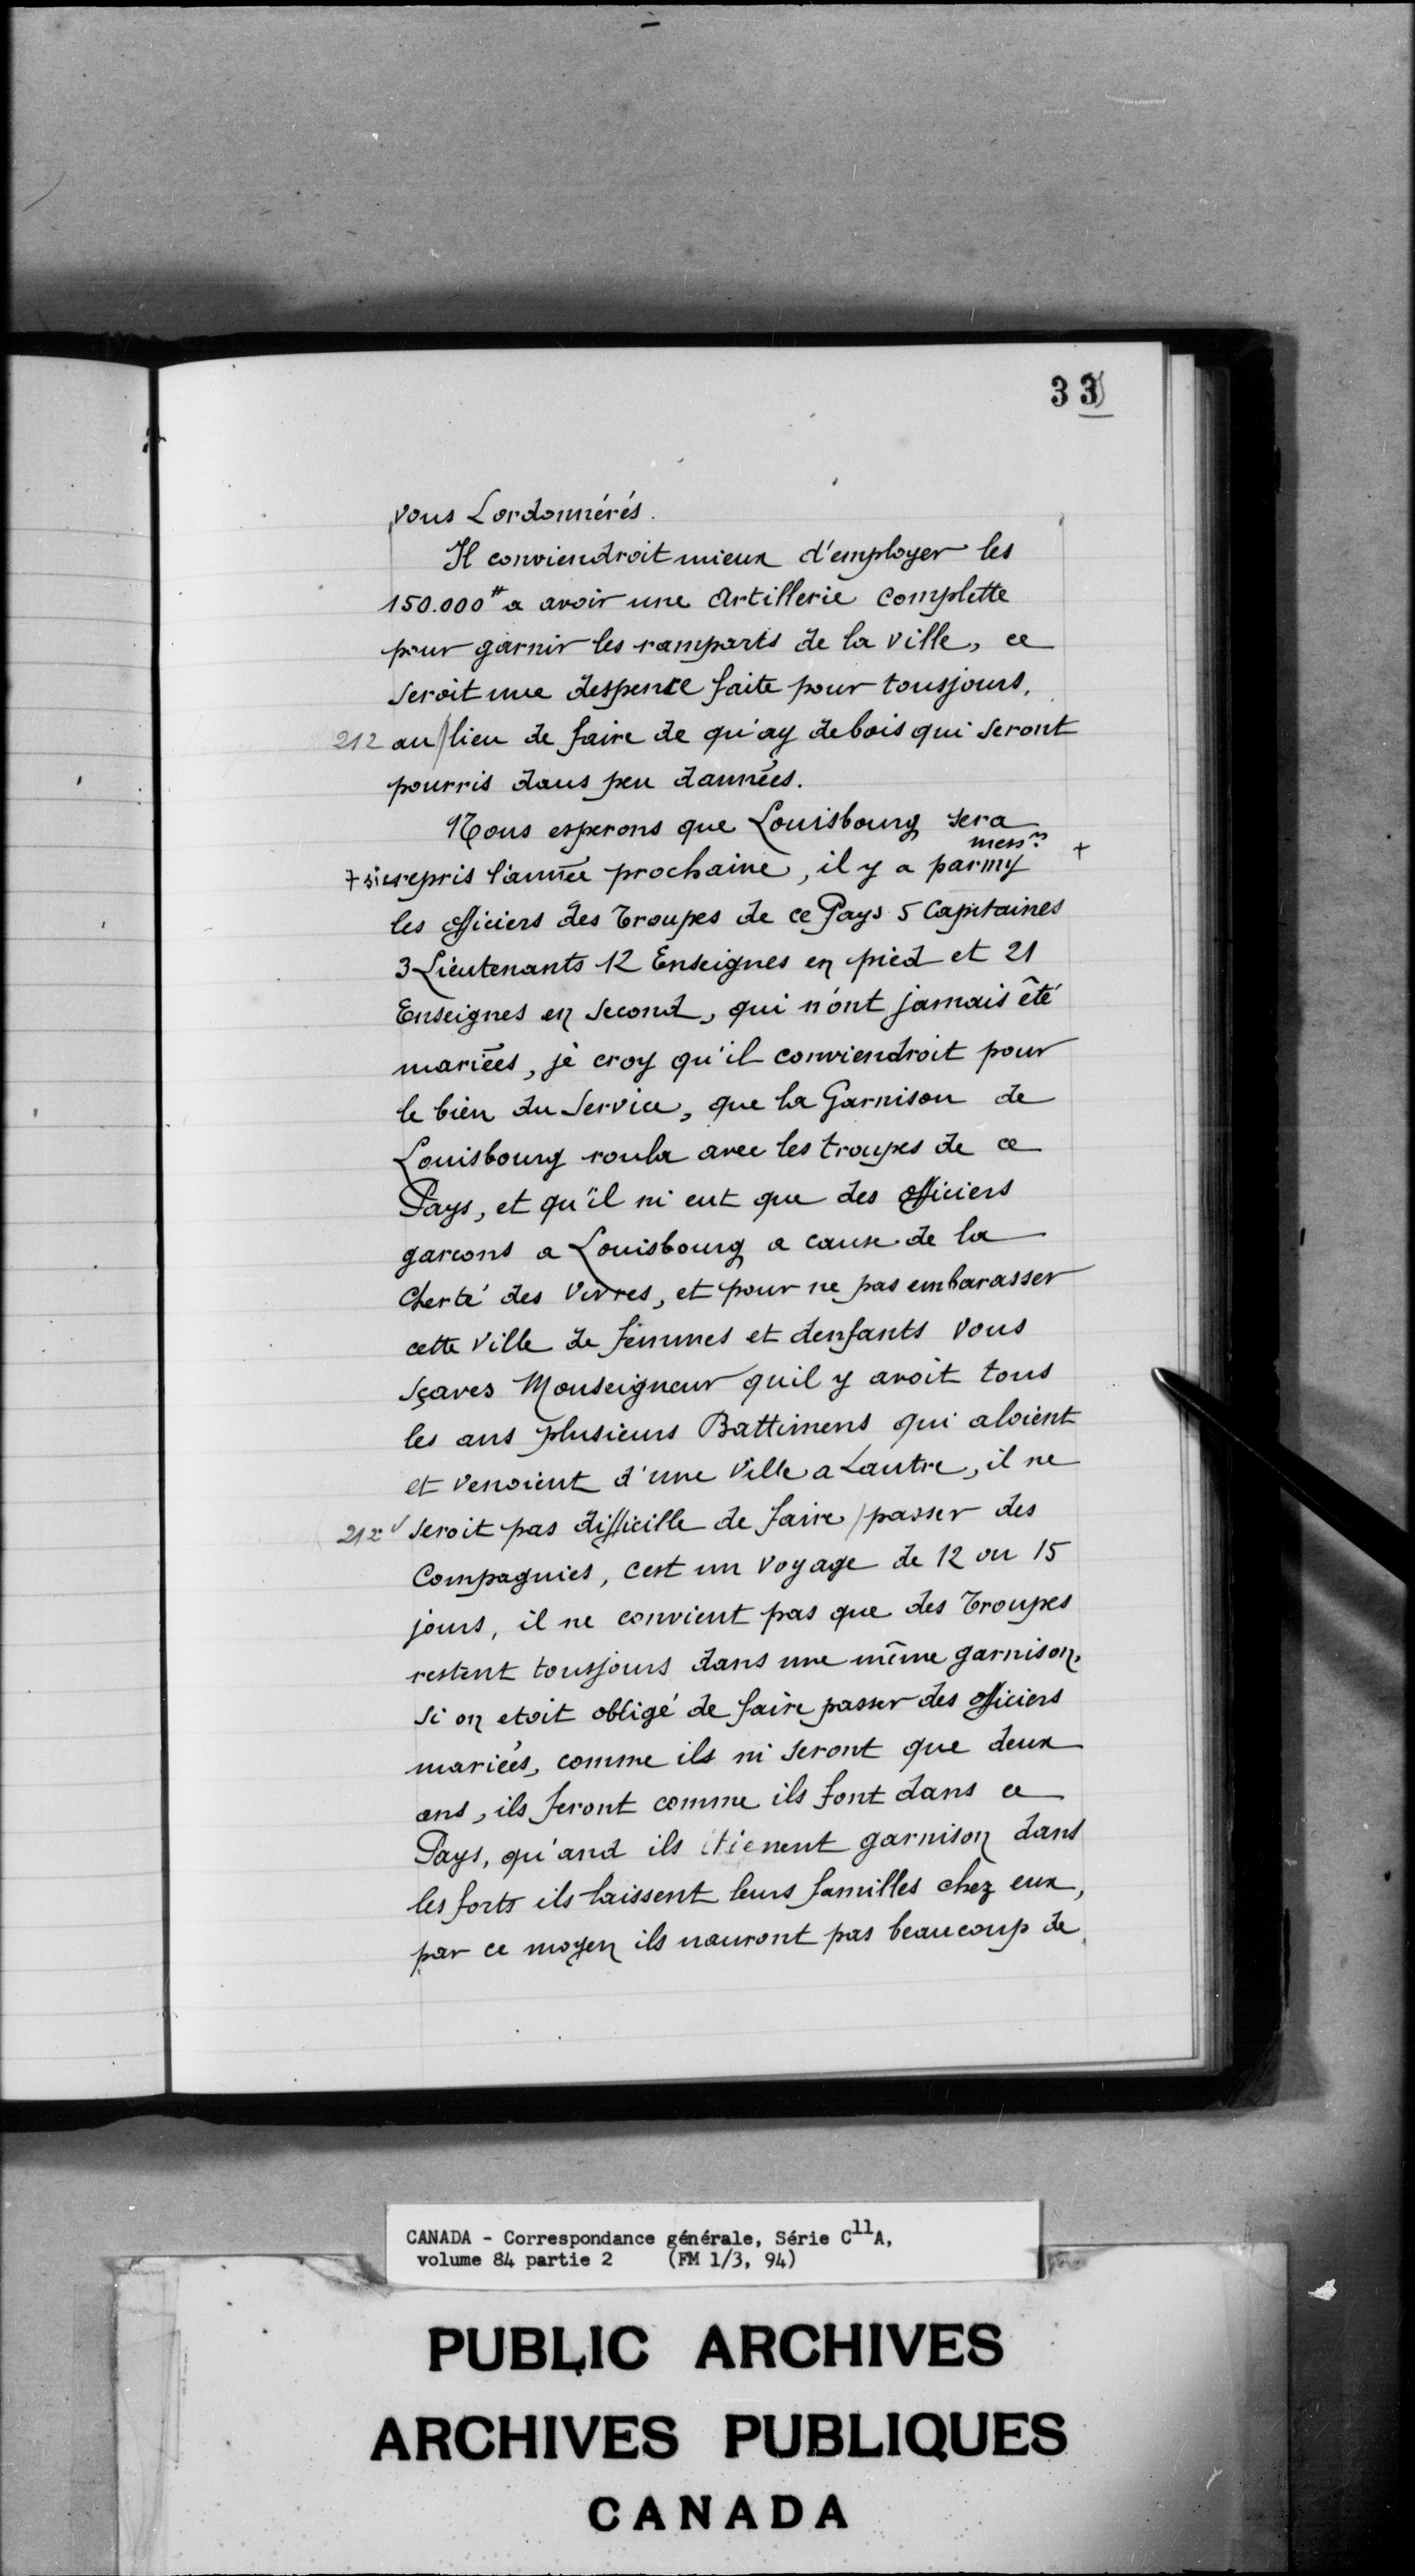 33
vous Lordonnérés.
Il conviendroit mieux d'employer les
150.000# a avoir une artillerie complette
pour garnir les ramparts de la ville, ce
seroit une despence faite pour tousjours,
212 au/lieu de faire de qu'ay de bois qui seront
pourris dans peu dannées.
Nous esperons que Louisbourg sera
mess.rs +
+ sic repris l'année prochaine, il y a parmy
les officiers des Troupes de ce Pays 5 Capitaines
3 Lieutenants 12 Enseignes en pied et 21
Enseignes en second, qui n'ont jamais été
mariées, je croy qu'il conviendroit pour
le bien du service, que la Garnison de
Louisbourg roula avec les troupes de ce
Pays, et qu'il ni eut que des officiers
garcons a Louisbourg a cause de la
Cherté des Vivres, et pour ne pas embarasser
cette ville de femmes et denfants vous
sçaves Monseigneur quil y avoit tous
les ans plusieurs Battimens qui aloient
et venoient d'une Ville a Lautre, il ne
212 v seroit pas difficille de faire/passer des
Compagnies, cest un voyage de 12 ou 15
jours, il ne convient pas que des Troupes
restent tousjours dans une même garnison,
si on etoit obligé de faire passer des officiers
mariées, comme ils ni seront que deux
ans, ils feront comme ils font dans ce
Pays, qu'and ils tienent garnison dans
les forts ils laissent leurs familles chez eux,
par ce moyen ils nauront pas beaucoup de
CANADA - Correspondance générale, Série C11A,
volume 84 partie 2 (FM 1/3, 94)
PUBLIC ARCHIVES
ARCHIVES PUBLIQUES
CANADA